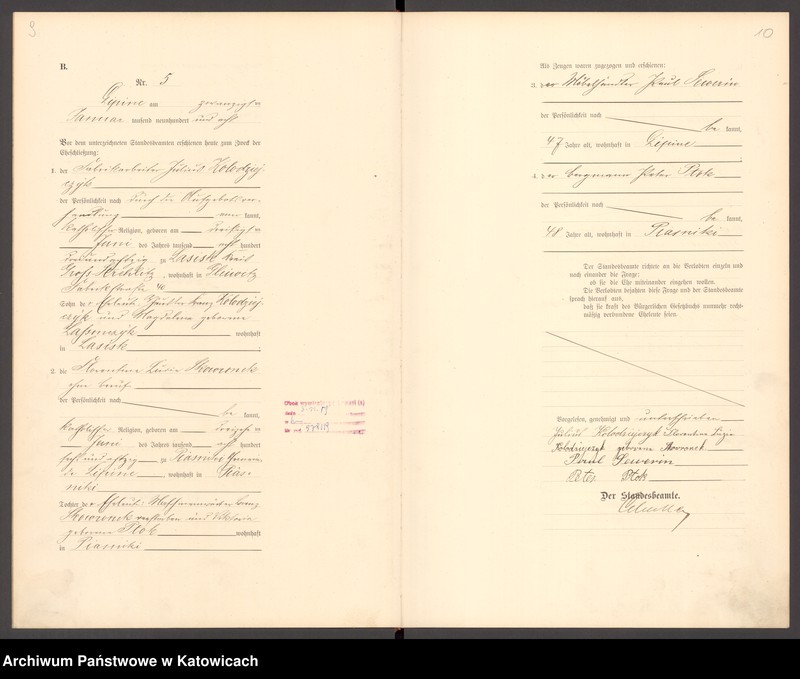 9
B.
Nr. 5
Lipine am zwanzigsten
Januar tausend neunhundert und acht
Vor dem unterzeichneten Standesbeamten erschienen heute zum Zweck der
Eheschließung:
1. der Fabrikarbeiter Julius Kolodziej
czyk
der Persönlichkeit nach durch die Aufgebotsver-
kannt,
katholischer Religion, geboren am
Juni des Jahres tausend acht hundert
zu Lasisk Kreis
Groß Strehlitz, wohnhaft in Gleiwitz
Sohn des Franz Kolodziej
czyk und Magdalena geborene
wohnhaft
in Lasisk
2. die Florentine Luzie
ohne Beruf
der Persönlichkeit nach
be kannt,
katholischer Religion, geboren am
Juni des Jahres tausend acht hundert
sechs und achtzig zu Piasniki
de Lipine, wohnhaft in Pias-
niki
Tochter des Franz
verstorben und Viktoria
geborene Ptok wohnhaft
in Piasniki
10
Als Zeugen waren zugezogen und erschienen:
3. der Möbelhändler Paul Sewerin
der Persönlichkeit nach
be kannt,
47 Jahre alt, wohnhaft in Lipine
4. der Bergmann Peter Ptok
der Persönlichkeit nach
be kannt,
48 Jahre alt, wohnhaft in Piasniki
Der Standesbeamte richtete an die Verlobten einzeln und
nach einander die Frage:
ob sie die Ehe miteinander eingehen wollen.
Die Verlobten bejahten diese Frage und der Standesbeamte
sprach hierauf aus,
daß sie kraft des Bürgerlichen Gesetzbuchs nunmehr recht-
mäßig verbundene Eheleute seien.
Vorgelesen, genehmigt und unterschrieben
Julius Kolodziejczyk Florentine Luzie
Kolodziejczyk geborene
Paul Sewerin
Peter Ptok
Der Standesbeamte.
Archiwum Państwowe w Katowicach